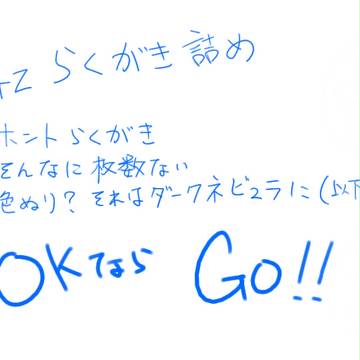 らくがき詰め
ホントらくがき
そんなに枚数ない
色ぬり？それはダークネビュラに(以下
OKなら Go!!